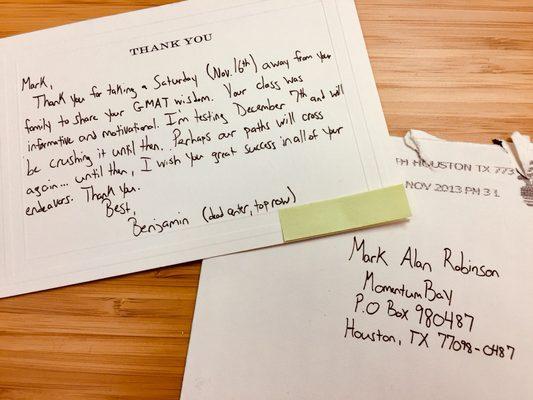 THANK YOU
Mark,
Thank you for taking a Saturday (Nov. 16th) away from your
family to share your GMAT wisdom. Your class was
informative and motivational. I'm testing December 7th and will
be crushing it until then. Perhaps our paths will cross
again... until then, I wish you great success in all of your
endeavors. Thank you.
Best,
Benjamin (dead center, top row)
HOUSTON TX 773
NOV 2013 PM 3 L
Mark Alan Robinson
MomentumBay
P.O Box 980487
Houston, TX 77098-0487